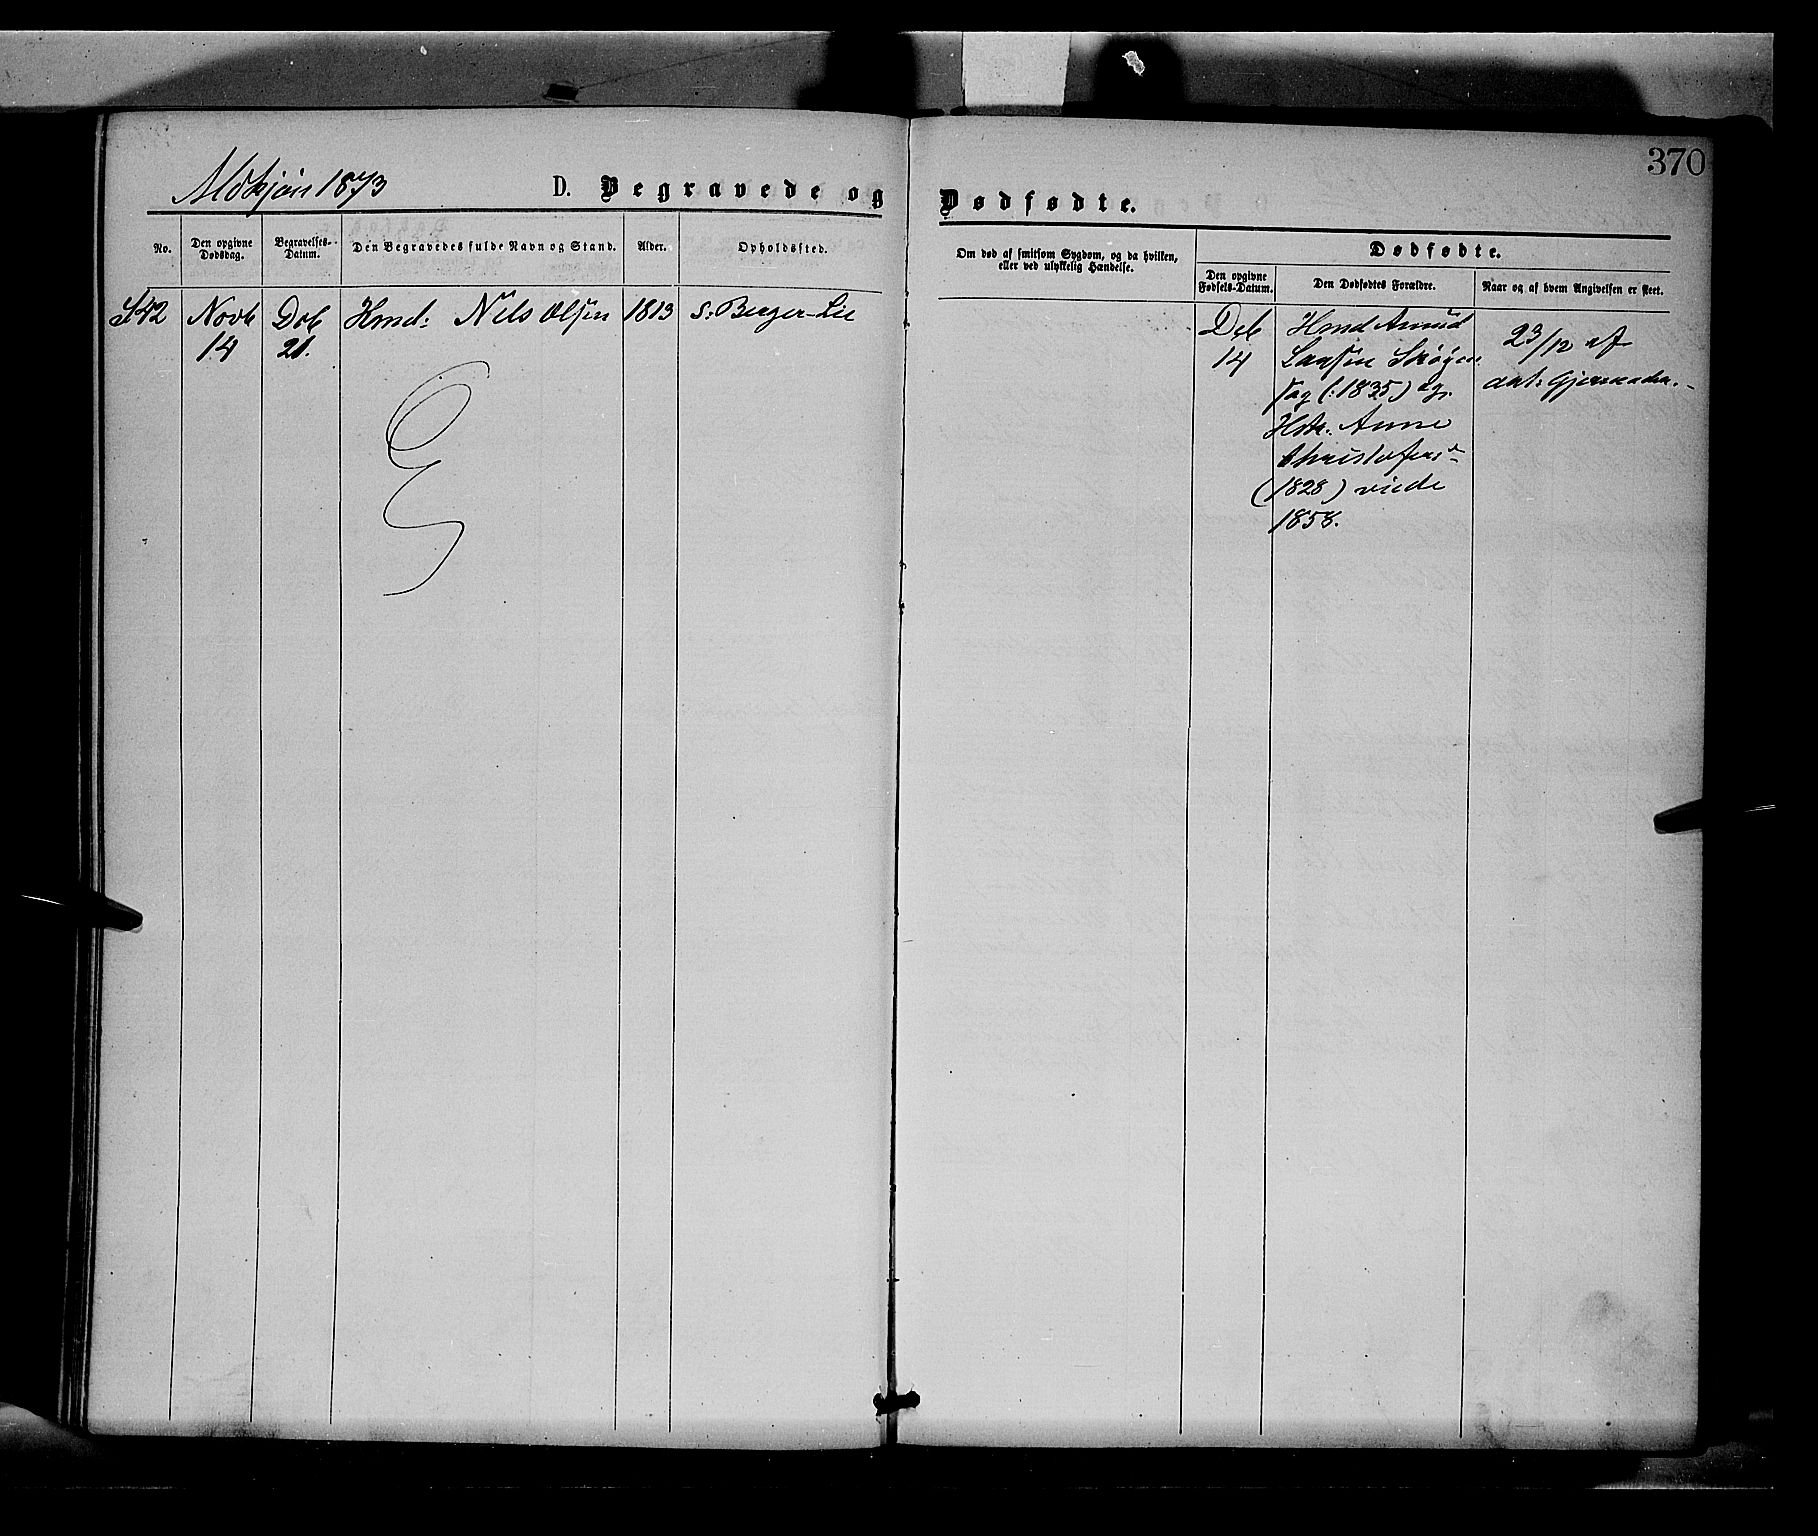 370
1873
D. Begravede og Dødfødte.
No.
Den opgivne Dødsdag.
Begravelses-Datum.
Den Begravedes fulde Navn og Stand.
Alder.
Opholdssted.
Om død af smitsom Sygdom, og da hvilken,
eller ved ulykkelig Hændelse.
Dødfødte.
Den opgivne Fødsels-Datum.
Den Dødfødtes Forældre.
Naar og af hvem Angivelsen er skeet.
42 Novb Deb Hmd: Nils Olsen 1813 s: Berger-Lie
14 21.
Deb
14
Hmd Amud
Larsen
(:1835) og
Hstr. Anne
Christofersd
(1828) viede
1858.
23/12 af